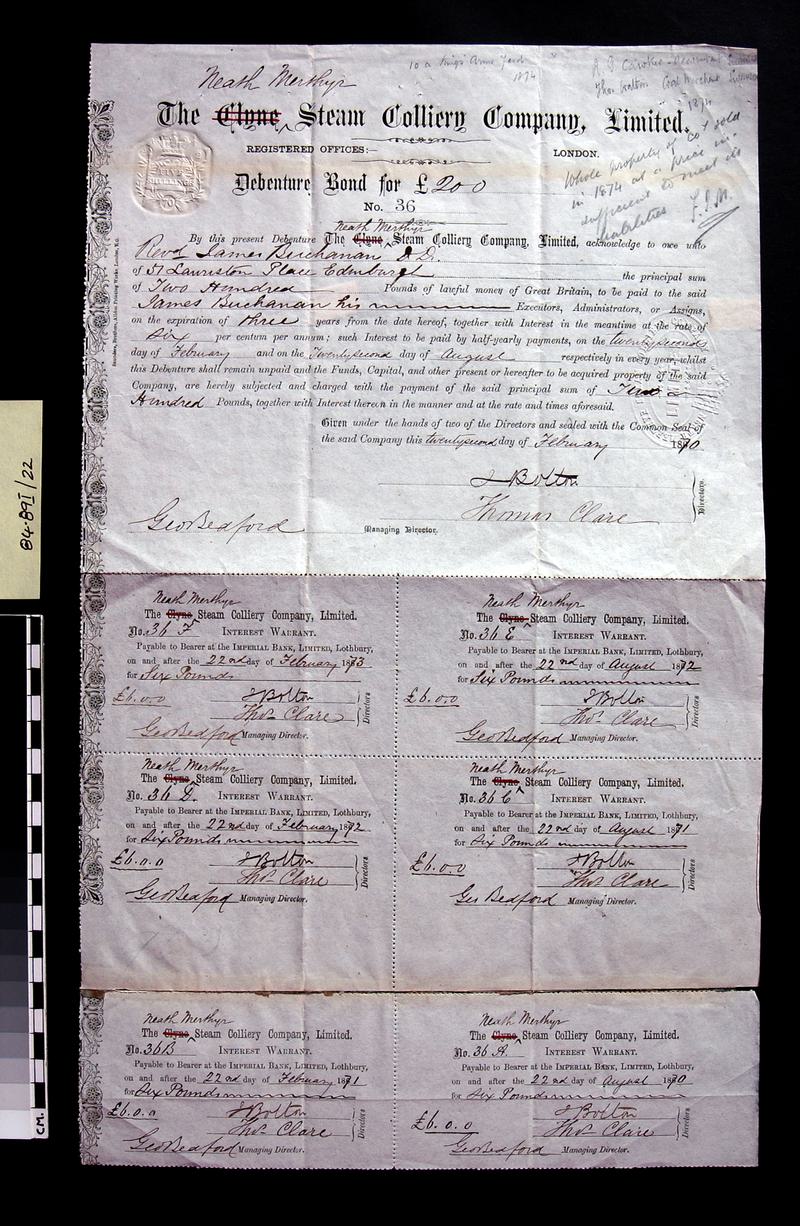 10 a Kings Arms Yard
1874
A. G. Cawker
Thos. Coal Merchant
1874
Whole property of Co. sold
in 1874 at a price in-
sufficient to meet its
liabilities
Neath Merthyr
The Clyne Steam Colliery Company, Limited.
REGISTERED OFFICES:— LONDON.
Debenture Bond for £200
No. 36
Neath Merthyr
By this present Debenture The Clyne Steam Colliery Company, Limited, acknowledge to owe unto
Revd James Buchanan D.D.
of 51 Lauriston Place Edinburgh the principal sum
of Two Hundred Pounds of lawful money of Great Britain, to be paid to the said
James Buchanan his Executors, Administrators, or Assigns,
on the expiration of three years from the date hereof, together with Interest in the meantime at the rate of
six per centum per annum; such Interest to be paid by half-yearly payments, on the twentysecond
day of February and on the Twentysecond day of August respectively in every year, whilst
this Debenture shall remain unpaid and the Funds, Capital, and other present or hereafter to be acquired property of the said
Company, are hereby subjected and charged with the payment of the said principal sum of Two
Hundred Pounds, together with Interest thereon in the manner and at the rate and times aforesaid.
Given under the hands of two of the Directors and sealed with the Common Seal of
the said Company this twentysecond day of February 1870
J Bolton
Thomas Clare
Directors.
Geo Bedford Managing Director.
Neath Merthyr
The Clyne Steam Colliery Company, Limited.
No. 36 F INTEREST WARRANT.
Payable to Bearer at the IMPERIAL BANK, LIMITED, Lothbury,
on and after the 22nd day of February 1873
for Six Pounds
£6.0.0 J Bolton
Thos. Clare
Directors
Geo Bedford Managing Director.
Neath Merthyr
The Clyne Steam Colliery Company, Limited.
No. 36 E INTEREST WARRANT.
Payable to Bearer at the IMPERIAL BANK, LIMITED, Lothbury,
on and after the 22nd day of August 1872
for Six Pounds
£6.0.0 J Bolton
Thos. Clare
Directors
Geo Bedford Managing Director.
Neath Merthyr
The Clyne Steam Colliery Company, Limited.
No. 36 D. INTEREST WARRANT.
Payable to Bearer at the IMPERIAL BANK, LIMITED, Lothbury,
on and after the 22nd day of February 1872
for Six Pounds
£6.0.0 J Bolton
Thos. Clare
Directors
Geo Bedford Managing Director.
Neath Merthyr
The Clyne Steam Colliery Company, Limited.
No. 36 C INTEREST WARRANT.
Payable to Bearer at the IMPERIAL BANK, LIMITED, Lothbury,
on and after the 22nd day of August 1871
for Six Pounds
£6.0.0 J Bolton
Thos. Clare
Directors
Geo Bedford Managing Director.
Neath Merthyr
The Clyne Steam Colliery Company, Limited.
No. 36 B INTEREST WARRANT.
Payable to Bearer at the IMPERIAL BANK, LIMITED, Lothbury,
on and after the 22nd day of February 1871
for Six Pounds
£6.0.0 J Bolton
Thos. Clare
Directors
Geo Bedford Managing Director.
Neath Merthyr
The Clyne Steam Colliery Company, Limited.
No. 36 A. INTEREST WARRANT.
Payable to Bearer at the IMPERIAL BANK, LIMITED, Lothbury,
on and after the 22nd day of August 1870
for Six Pounds
£6.0.0 J Bolton
Thos. Clare
Directors
Geo Bedford Managing Director.
84.89I/22
CM.